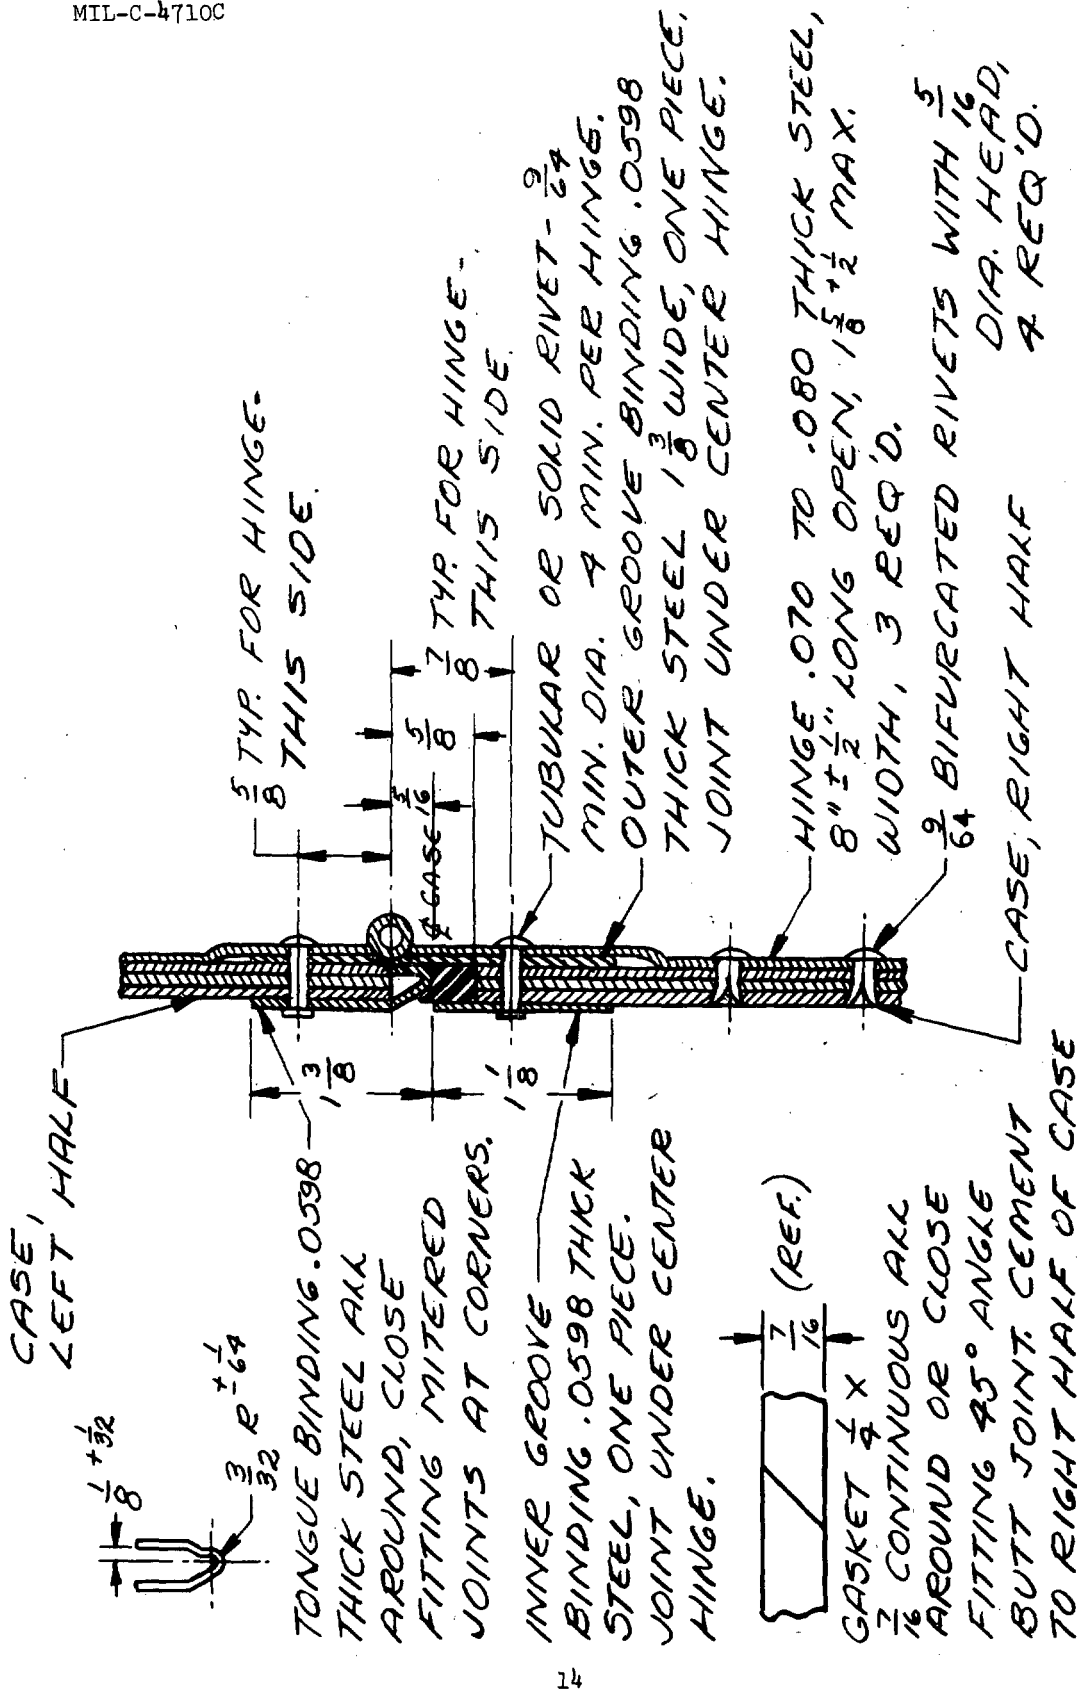 MIL-C-4710C
CASE,
LEFT HALF
1/8 + 1/32
3/32 R +- 1/64
TONGUE BINDING .0598
THICK STEEL ALL
AROUND, CLOSE
FITTING MITERED
JOINTS AT CORNERS.
INNER GROOVE
BINDING .0598 THICK
STEEL, ONE PIECE.
JOINT UNDER CENTER
HINGE.
7/16 (REF.)
GASKET 1/4 X
7/16 CONTINUOUS ALL
AROUND OR CLOSE
FITTING 45° ANGLE
BUTT JOINT. CEMENT
TO RIGHT HALF OF CASE
1 3/8
1 1/8
5/8 TYP. FOR HINGE-
THIS SIDE.
5/16
5/8
7/8
TYP. FOR HINGE-
THIS SIDE.
℄ CASE
TUBULAR OR SOLID RIVET- 9/64
MIN. DIA. 4 MIN. PER HINGE.
OUTER GROOVE BINDING .0598
THICK STEEL 1 3/8 WIDE, ONE PIECE,
JOINT UNDER CENTER HINGE.
HINGE .070 TO .080 THICK STEEL,
8" ± 1/2" LONG OPEN, 1 5/8 + 1/2 MAX.
WIDTH, 3 REQ'D.
9/64 BIFURCATED RIVETS WITH 5/16
DIA. HEAD,
4 REQ'D.
CASE, RIGHT HALF
14